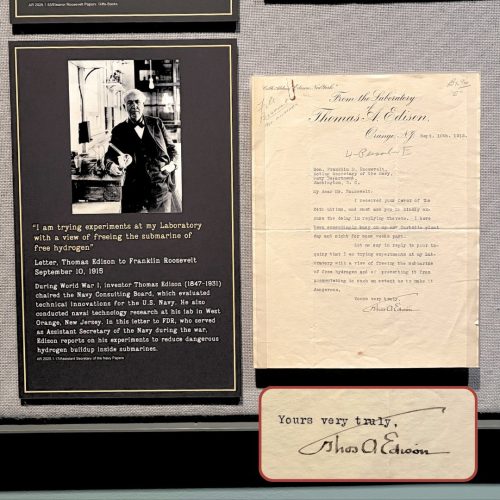 "I am trying experiments at my Laboratory
with a view of freeing the submarine of
free hydrogen"
Letter, Thomas Edison to Franklin Roosevelt
September 10, 1915
During World War I, inventor Thomas Edison (1847-1931)
chaired the Navy Consulting Board, which evaluated
technical innovations for the U.S. Navy. He also
conducted naval technology research at his lab in West
Orange, New Jersey. In this letter to FDR, who served
as Assistant Secretary of the Navy during the war,
Edison reports on his experiments to reduce dangerous
hydrogen buildup inside submarines.
From the Laboratory
of
Thomas A. Edison,
Orange, N.J. Sept. 10th, 1915.
Hon. Franklin D. Roosevelt,
Acting Secretary of the Navy,
Navy Department,
Washington, D. C.
My dear Mr. Roosevelt:
I received your favor of the
ultimo, and must ask you to kindly ex-
cuse the delay in replying thereto. I have
been exceedingly busy on my new Carbolic plant
day and night for some weeks past.
Let me say in reply to your in-
quiry that I am trying experiments at my Lab-
oratory with a view of freeing the submarine
of free hydrogen and of preventing it from
accumulating to such an extent as to make it
dangerous.
Yours very truly,
Thos A Edison
Yours very truly,
Thos A Edison